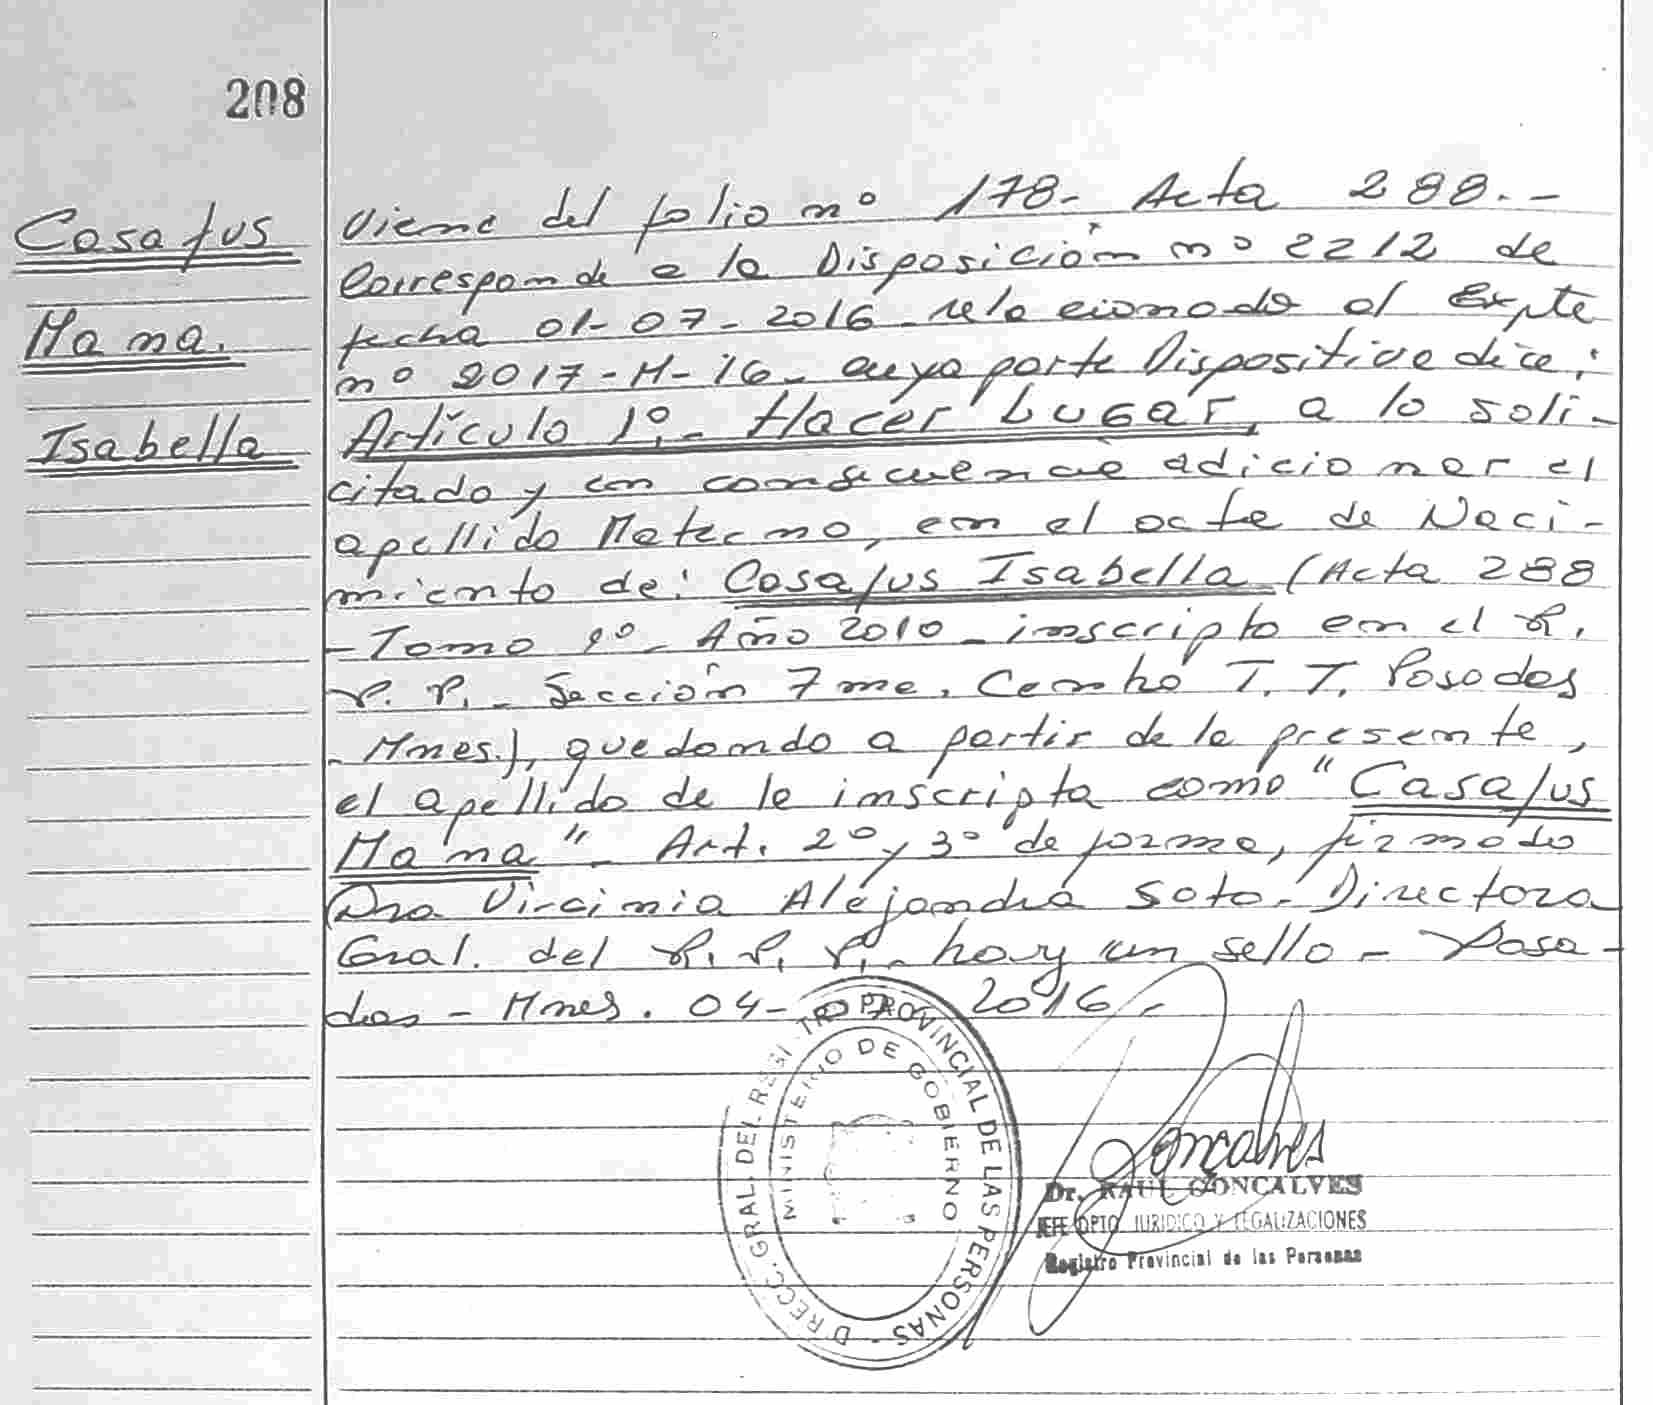 208
Casajus
Mama.
Isabella
Viene del folio nº 178.- Acta 288.-
Corresponde a la Disposición nº 2212 de
fecha 01-07-2016 - relacionado al Expte
nº 2017-M-16 - cuya parte Dispositiva dice:
Artículo 1º.- Hacer Lugar, a lo soli-
citado y en consecuencia adicionar el
apellido Materno, en el acta de Naci-
miento de: Casajus Isabella (Acta 288
-Tomo 1º - Año 2010 - inscripto en el R.
P. P. - Sección 7ma. Centro T. T. Posadas
- Mnes.), quedando a partir de la presente,
el apellido de la inscripta como "Casajus
Mama" - Art. 2º y 3º de forma, firmado
Dra Virginia Alejandra Soto - Directora
Gral. del R. P. P. - hay un sello - Posa-
das - Mnes. 04-07-2016.-
DIRECC. GRAL. DEL REGISTRO PROVINCIAL DE LAS PERSONAS -
MINISTERIO DE GOBIERNO
Goncalves
Dr. RAUL GONCALVES
JEFE DPTO JURIDICO Y LEGALIZACIONES
Registro Provincial de las Personas